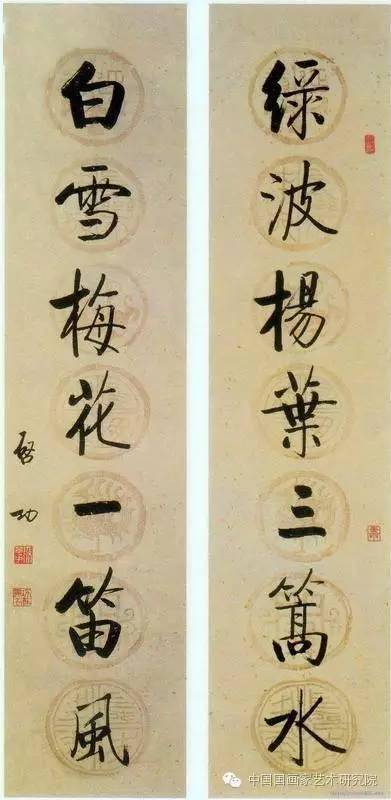 緑波楊葉三篙水
白雪梅花一笛風
啓功
中国国画家艺术研究院